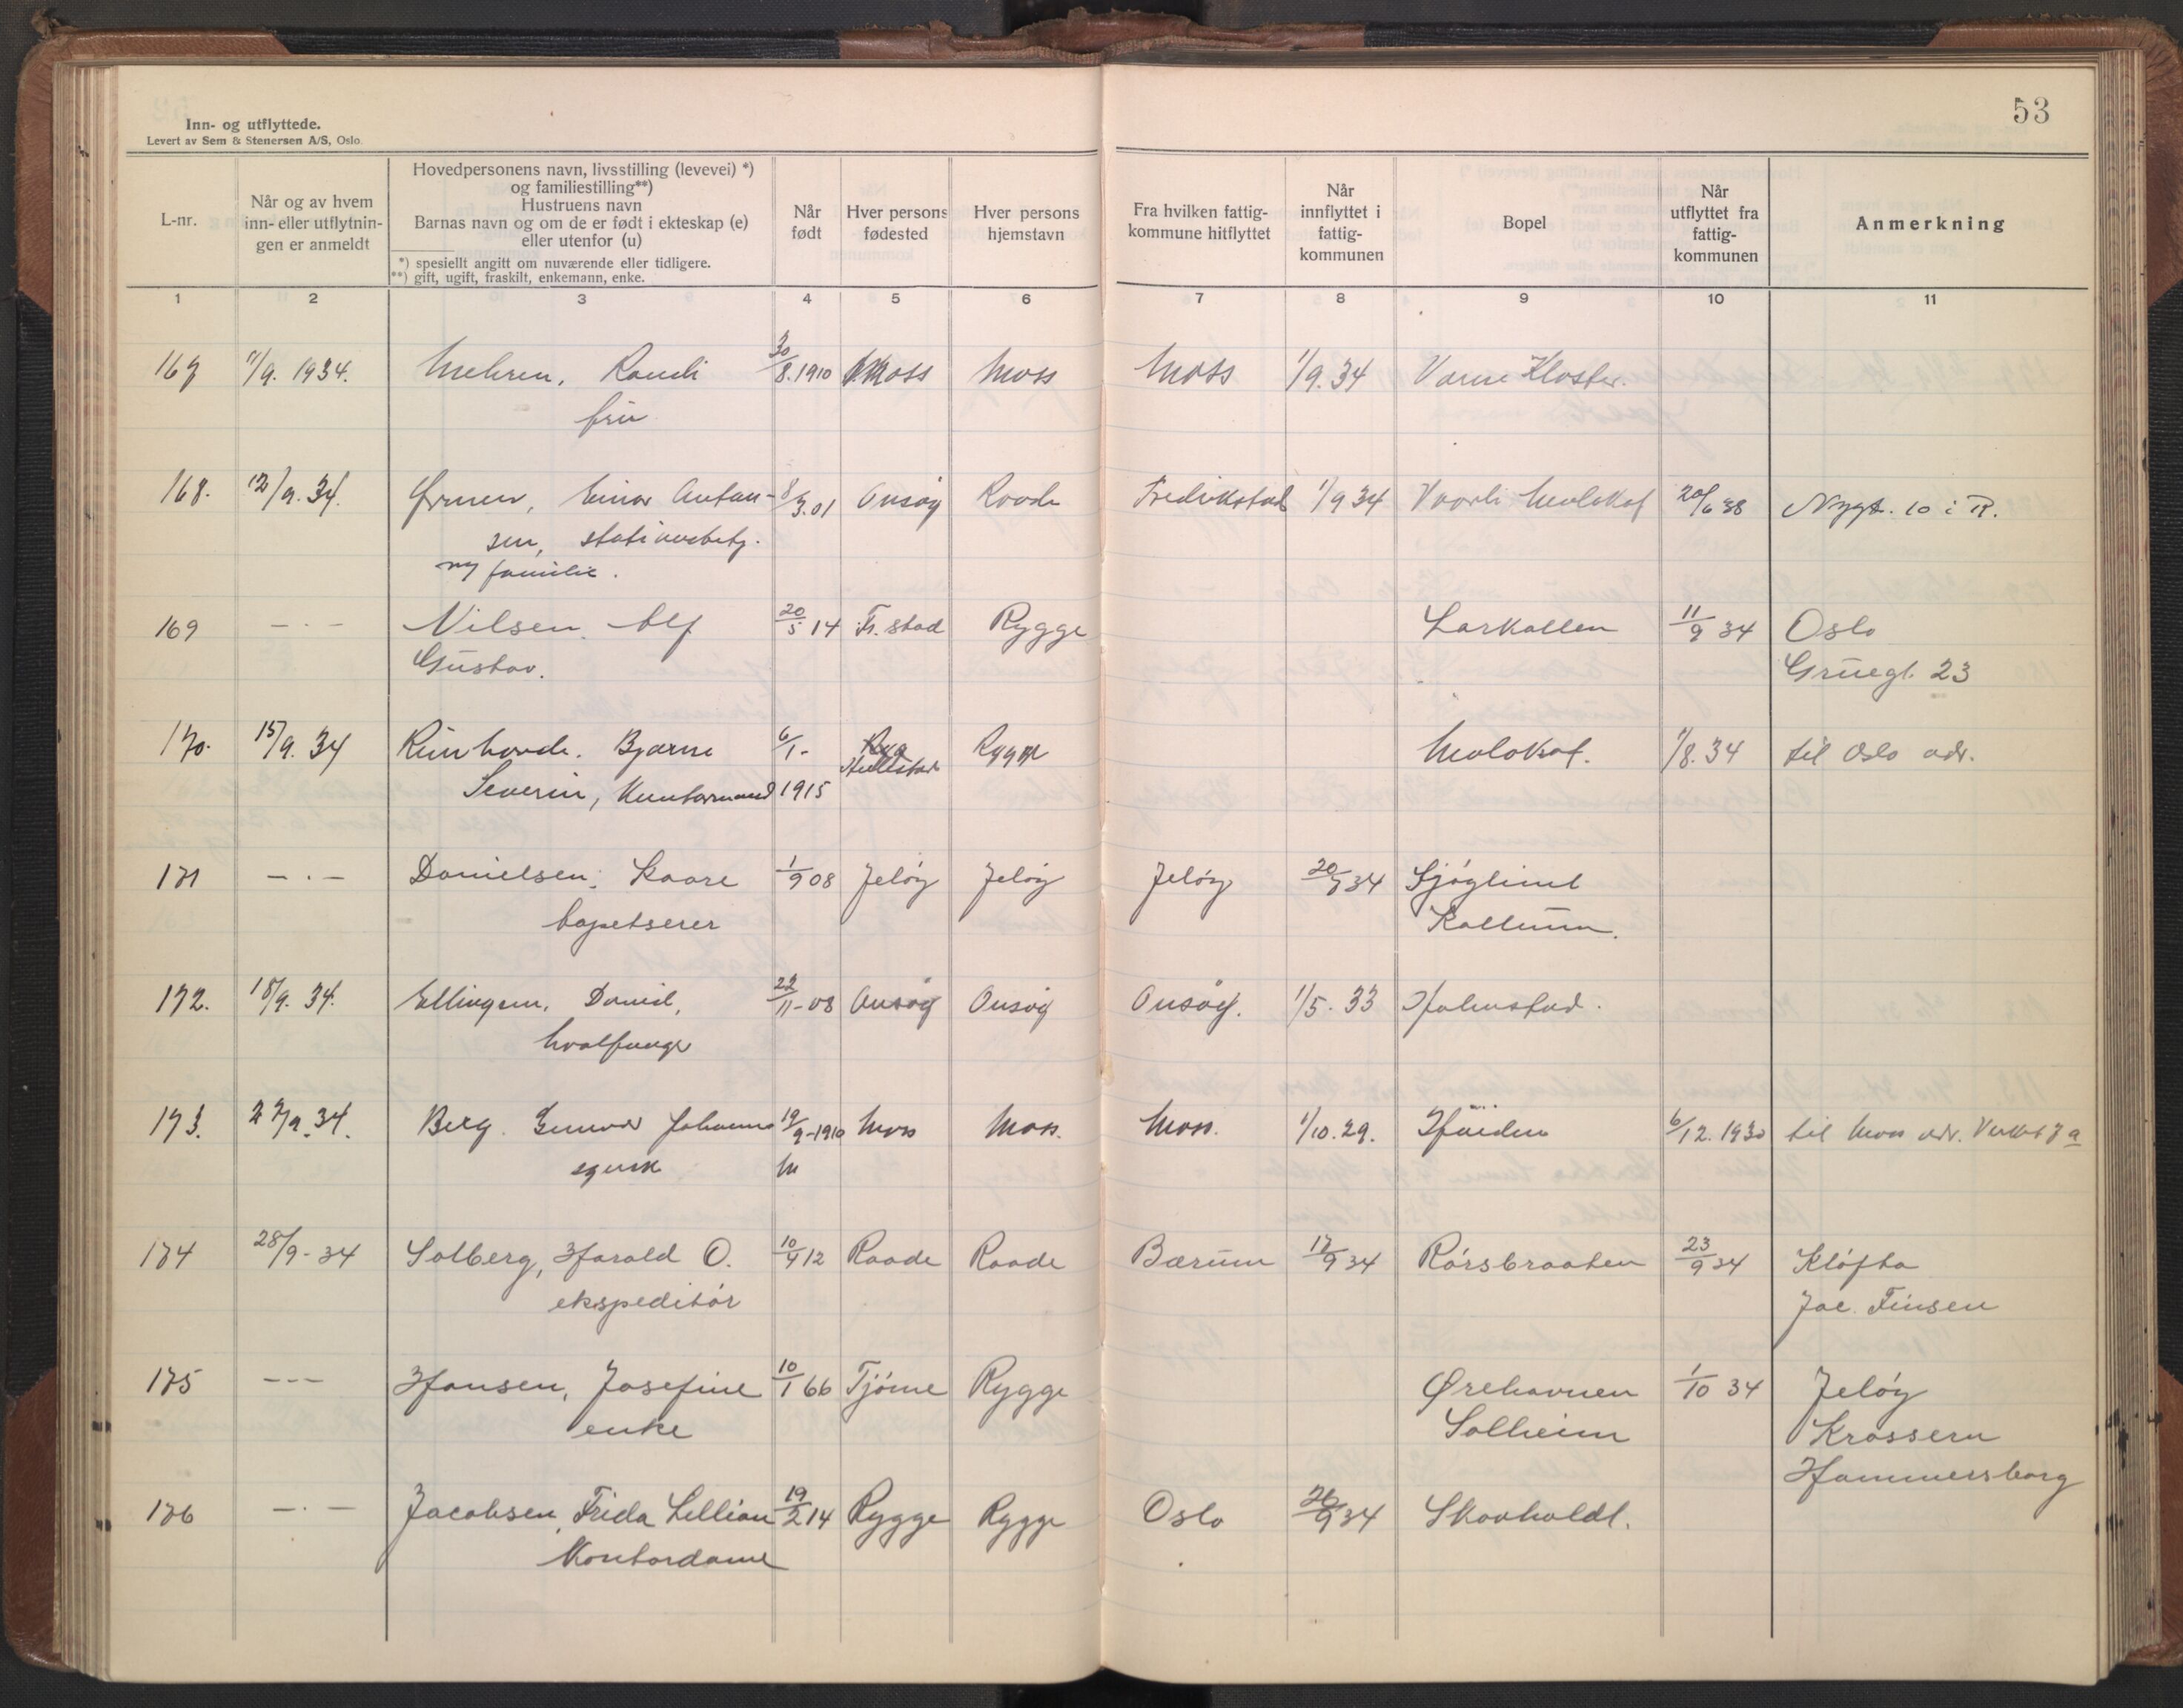 53
Inn- og utflyttede.
Levert av Sem & Stenersen A/S, Oslo.
L-nr.
Når og av hvem
inn- eller utflytnin-
gen er anmeldt
Hovedpersonens navn, livsstilling (levevei) *)
og familiestilling**)
Hustruens navn
Barnas navn og om de er født i ekteskap (e)
eller utenfor (u)
*) spesiellt angitt om nuværende eller tidligere.
**) gift, ugift, fraskilt, enkemann, enke.
Når
født
Hver persons
fødested
Hver persons
hjemstavn
Fra hvilken fattig-
kommune hitflyttet
Når
innflyttet i
fattig-
kommunen
Bopel
Når
utflyttet fra
fattig-
kommunen
Anmerkning
1 2 3 4 5 6 7 8 9 10 11
167 1934. Mehren, Randi 30/8.1910 Moss Moss Moss 1/9.34 Varne Kloster.
fru
168. 12/9.34. Ørmen, Einar Anton- 8/3.01 Onsøy Raade Fredrikstad 1/9 34 Vaarli 20/6 38 Nygt. 10 i R.
sen, stationsbetj.
m/ familie.
169 — · — Nilsen, Alf 20/5 14 Fr.stad Rygge Larkollen 11/9 34 Oslo
Gustav. Gruegt. 23
170. 15/9.34 Bjarne 6/1- Rygge 1/8.34 til Oslo adr.
Severin, 1915
171 — · — Danielsen, Kaare 1/9 08 Jeløy Jeløy Jeløy 34 Sjøglimt
tapetserer Kallum.
172. 18/9.34. Ellingsen, Daniel, 11-08 Onsøy Onsøy Onsøy. 1/5.33 Halmstad.
hvalfanger
173. 27/9.34. Berg, Gunvor 19/9-1910 Moss Moss. Moss. 1/10.29. Høiden 6/12.1930 til Moss adr.
174 28/9-34 Solberg, Harald O. 12 Raade Raade Bærum 17/9 34 Rørsbraaten 23/9 34 Kløfta
ekspeditør Jac. Finsen
175 --- Hansen, Josefine 10/1 66 Tjøme Rygge Ørehavnen 1/10 34 Jeløy
enke Solheim Krossern
Hammersborg
176 — · — Jacobsen, Frida Lillian 19/2 14 Rygge Rygge Oslo 26/9 34 Skovholdt.
Kontordame